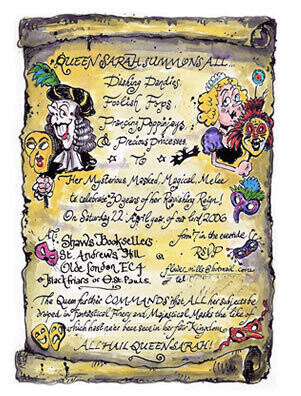 QUEEN SARAH SUMMONS ALL...
Dashing Dandies,
Foolish Fops,
Prancing Poppinjays
& Precious Princesses,
TO
Her Mysterious, Masked, Magical, Melee
to celebrate 30 years of her Ravishing Reign!
On Saturday 22 April, year of our lord 2006
At Shaws Booksellers
St. Andrew's Hill
Olde London, EC4
Blackfriars or St. Pauls.
from 7 in the eventide
RSVP
mills@hotmail.com
tel
The Queen further COMMANDS that ALL her subjects be
draped in Fantastical Finery and Majessical Masks the like of
which hast ne'er been seen in her fair Kingdom
ALL HAIL QUEEN SARAH!